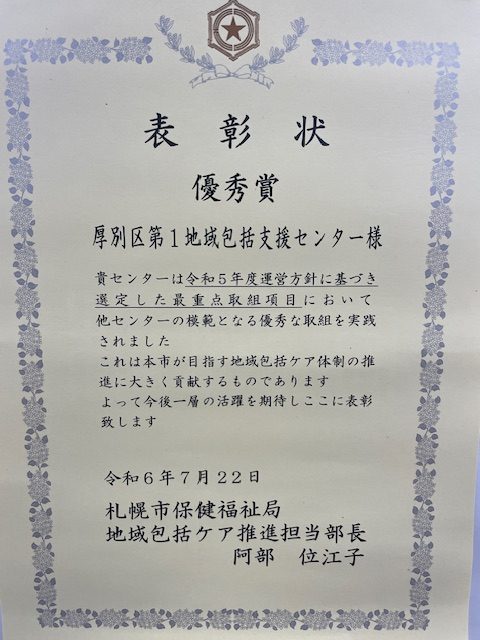 表彰状
優秀賞
厚別区第1地域包括支援センター様
貴センターは令和5年度運営方針に基づき
選定した最重点取組項目において
他センターの模範となる優秀な取組を実践
されました
これは本市が目指す地域包括ケア体制の推
進に大きく貢献するものであります
よって今後一層の活躍を期待しここに表彰
致します
令和6年7月22日
札幌市保健福祉局
地域包括ケア推進担当部長
阿部 位江子